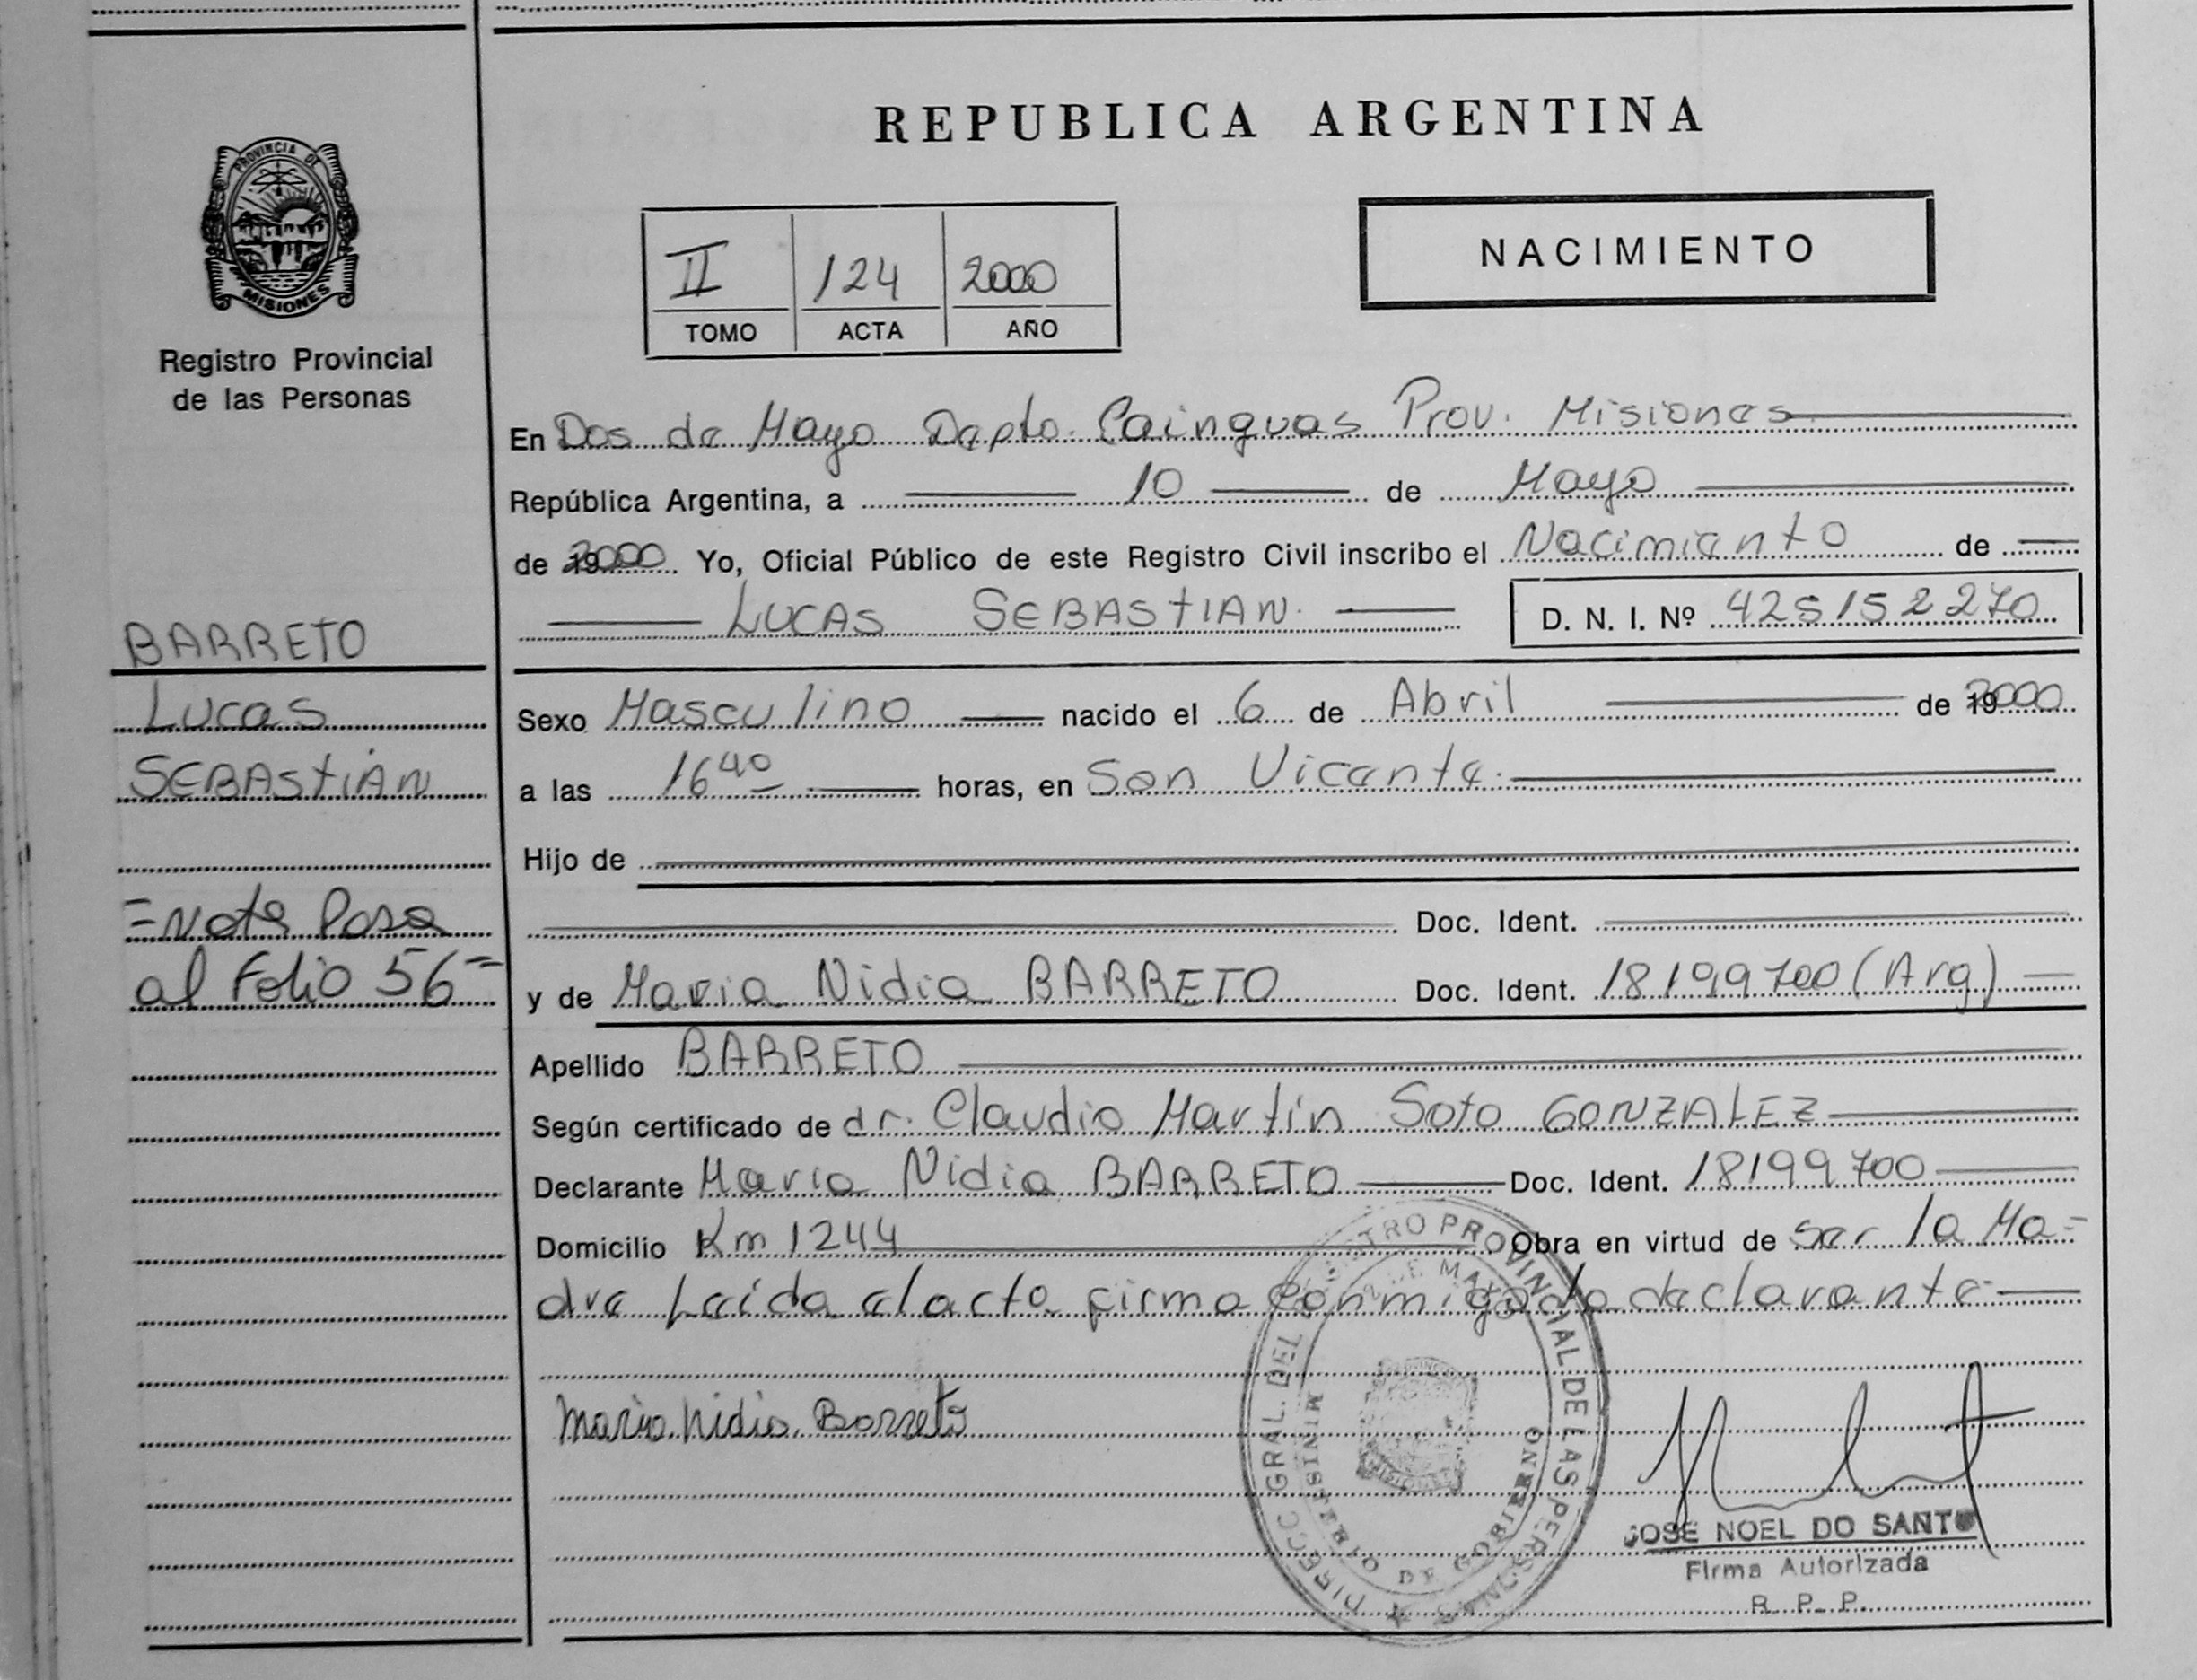 REPUBLICA ARGENTINA
PROVINCIA DE
MISIONES
Registro Provincial
de las Personas
II 124 2000
TOMO ACTA AÑO
NACIMIENTO
En Dos de Mayo Depto. Cainguas Prov. Misiones
República Argentina, a 10 de Mayo
de 2000 Yo, Oficial Público de este Registro Civil inscribo el Nacimiento de
LUCAS SEBASTIAN. D. N. I. Nº
BARRETO
Lucas
SEBASTIAN
=Nota Pasa
al Folio 56=
Sexo Masculino nacido el 6 de Abril de 2000
a las 16 40 horas, en San Vicente.
Hijo de
Doc. Ident.
y de Maria Nidia BARRETO Doc. Ident. 18199700 (Arg)
Apellido BARRETO
Según certificado de dr. Claudio Martín Soto GONZALEZ
Declarante Maria Nidia BARRETO Doc. Ident. 18199700
Domicilio Km 1244 Obra en virtud de ser la Ma=
dre Leída el acta firma conmigo la declarante.
Maria Nidia Barreto
DIRECC. GRAL. DEL REGISTRO PROVINCIAL DE LAS PERSONAS
MINISTERIO DE GOBIERNO
2 DE MAYO
MISIONES
JOSE NOEL DO SANTO
Firma Autorizada
R. P. P.